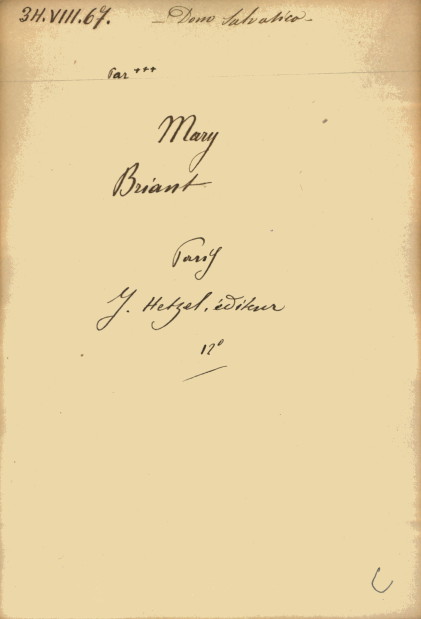 34.VIII.67. — Dono Salvatico —
Par +++
Mary
Briant
Paris
J. Hetzel, éditeur
12°